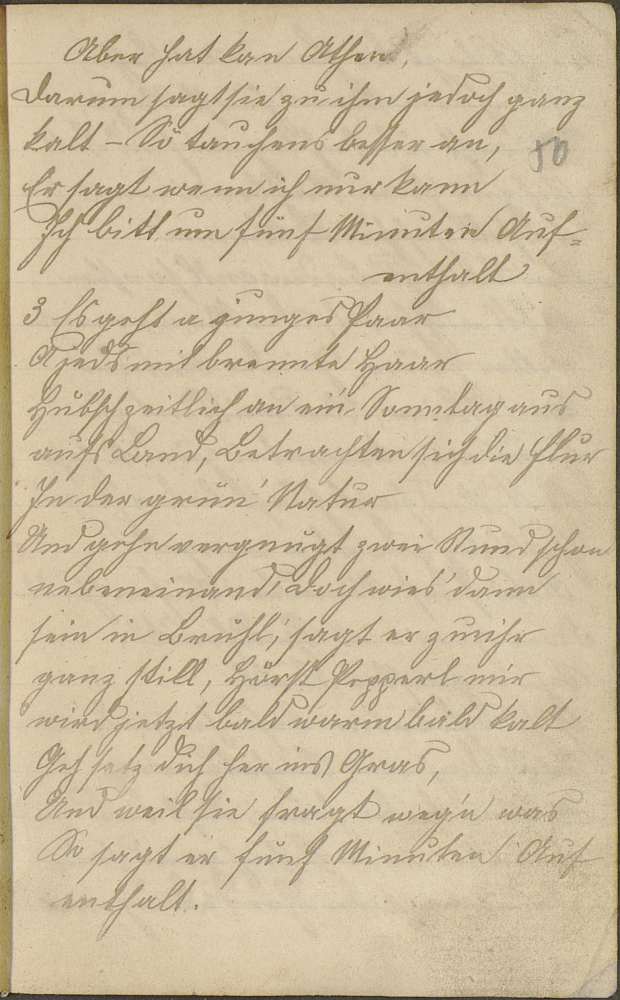 Aber hat kan Athen,
Darum sagt sie zu ihm jedoch ganz
kalt – So tauchens besser an,
50
Er sagt wenn ich nur kann
Ich bitt um fünf Minuten Auf=
enthalt
3 Es geht a junges Paar
A jeds mit brennte Haar
Hübsch zeitlich an ein Sonntag aus
aufs Land, Betrachten sich die Flur
In der grün' Natur
Und gehn vergnügt zwei Stund schon
nebeneinand, Doch wies' dann
sein in Brühl, sagt er zu ihr
ganz still, Hörst Pepperl mir
wird jetzt bald warm bald kalt
Geh setz dich her ins Gras,
Und weil sie fragt weg'n was
So sagt er fünf Minuten Auf
enthalt.